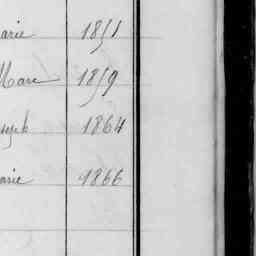 arie 1851
Marc 1859
oseph 1864
arie 1866